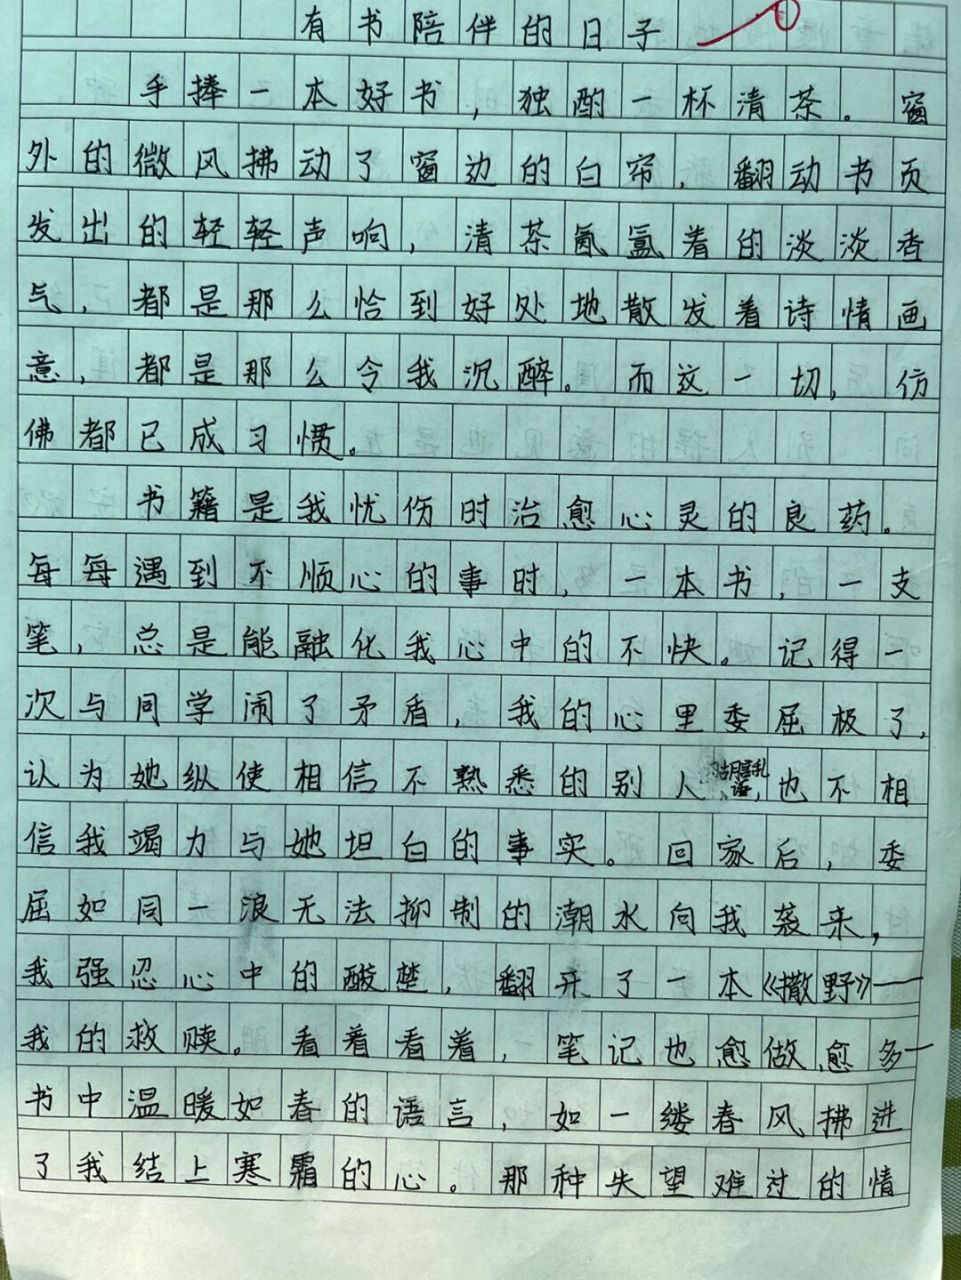 有书陪伴的日子
手捧一本好书，独酌一杯清茶。窗
外的微风拂动了窗边的白帘，翻动书页
发出的轻轻声响，清茶氤氲着的淡淡香
气，都是那么恰到好处地散发着诗情画
意，都是那么令我沉醉。而这一切，仿
佛都已成习惯。
书籍是我忧伤时治愈心灵的良药。
每每遇到不顺心的事时，一本书，一支
笔，总是能融化我心中的不快。记得一
次与同学闹了矛盾，我的心里委屈极了，
认为她纵使相信不熟悉的别人的胡言乱语，也不相
信我竭力与她坦白的事实。回家后，委
屈如同一浪无法抑制的潮水向我袭来，
我强忍心中的酸楚，翻开了一本《撒野》——
我的救赎。看着看着，笔记也愈做愈多—
书中温暖如春的语言，如一缕春风拂进
了我结上寒霜的心。那种失望难过的情